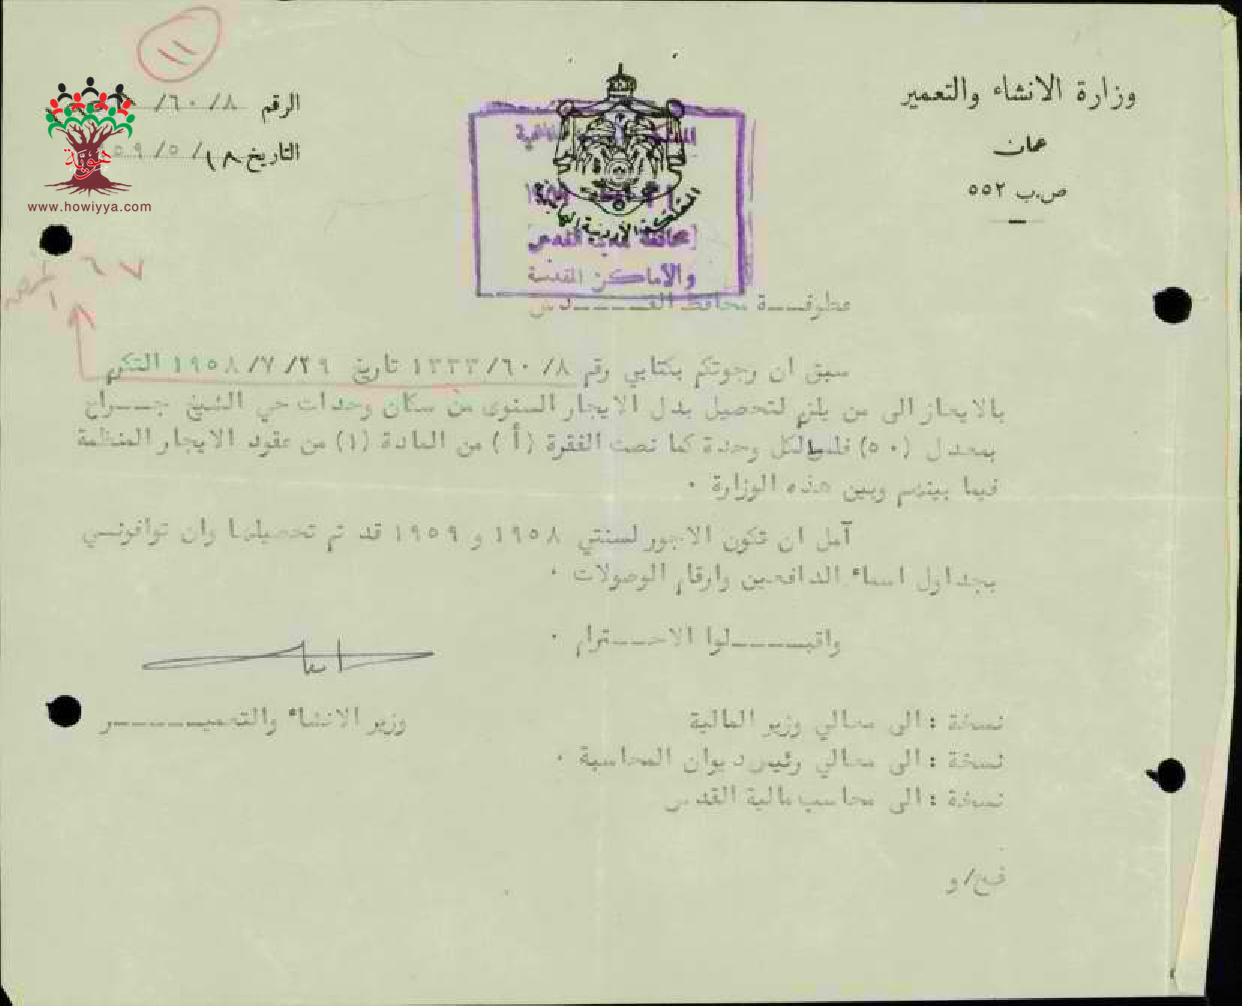 ١١
وزارة الانشاء والتعمير
عمان
ص.ب ٥٥٢
الرقم ٦٠/٨/
التاريخ ١٨/٥/٥٩
www.howiyya.com
هوية
المملكة الأردنية الهاشمية
محافظة القدس
والأماكن المقدسة
٦٧
عطوفـــة محافظ القــــــدس
سبق ان رجوتكم بكتابي رقم ١٣٣٣/٦٠/٨ تاريخ ١٩٥٨/٧/٢٩ التكرم
بالايعاز الى من يلزم لتحصيل بدل الايجار السنوى من سكان وحدات حي الشيخ جــراح
بمعدل (٥٠) فلس لكل وحدة كما نصت الفقرة (أ) من المادة (١) من عقود الايجار المنظمة
فيما بينهم وبين هذه الوزارة ٠
آمل ان تكون الاجور لسنتي ١٩٥٨ و ١٩٥٩ قد تم تحصيلها وان توافونــي
بجداول اسماء الدافعين وارقام الوصولات ٠
واقبــــــلوا الاحـــترام ٠
وزير الانشاء والتعميــــــر
نسخة : الى معالي وزير المالية
نسخة : الى معالي رئيس ديوان المحاسبة ٠
نسخة : الى محاسب مالية القدس